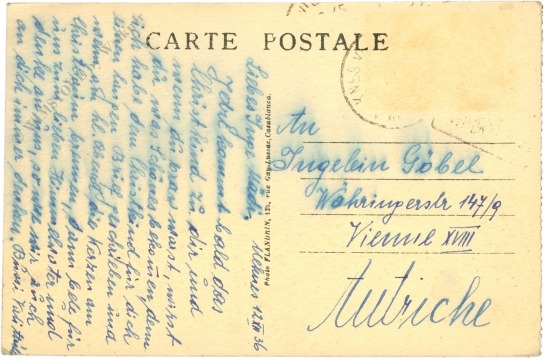 CARTE POSTALE
An
Ingebin Göbel
Währingerstr 147/9
Vienne XVIII
Autriche
Photo FLANDRIN, 125, rue Gay-Lussac, Casablanca.
Meknes 12 XII 36
Liebes
Jetzt kommt bald das
Christkind zu dir und
wenn du brav warst, wirst
du was schönes bekommen denn
ich habe dem Christkind für dich
einen langen Brief geschrieben und
wenn am die Kerzen am
Christbaum brennen, dann bete für
zum lieben Himmelvater und
denke an uns, so wie wir auch
an dich immer denken.